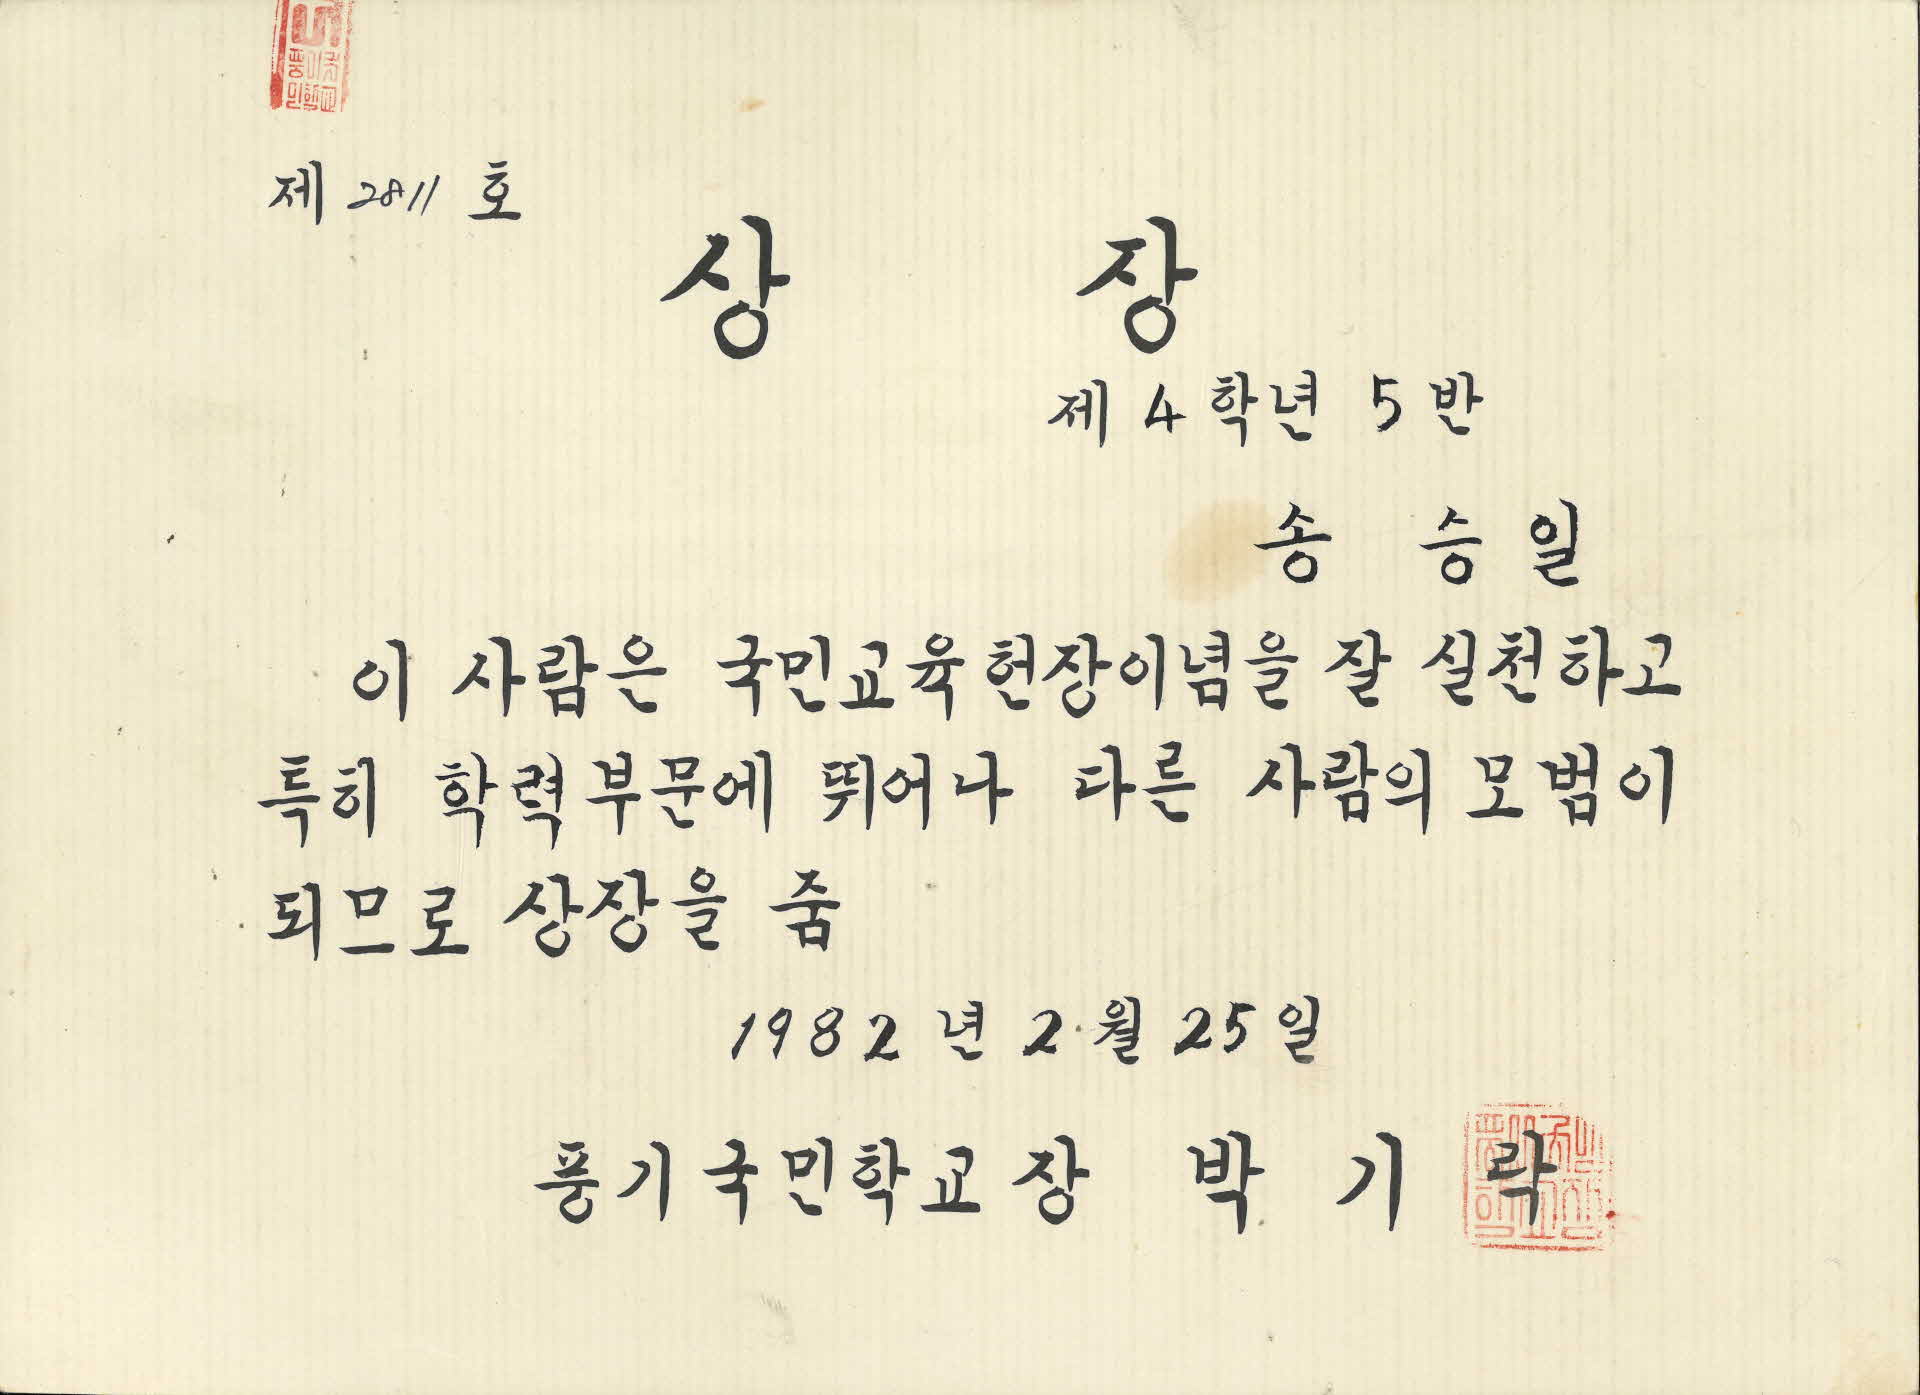 제 2811 호
상 장
제 4 학년 5 반
송 승 일
이 사람은 국민교육헌장이념을 잘 실천하고
특히 학력부문에 뛰어나 다른 사람의 모범이
되므로 상장을 줌
1982 년 2 월 25 일
풍기국민학교장 박 기 락